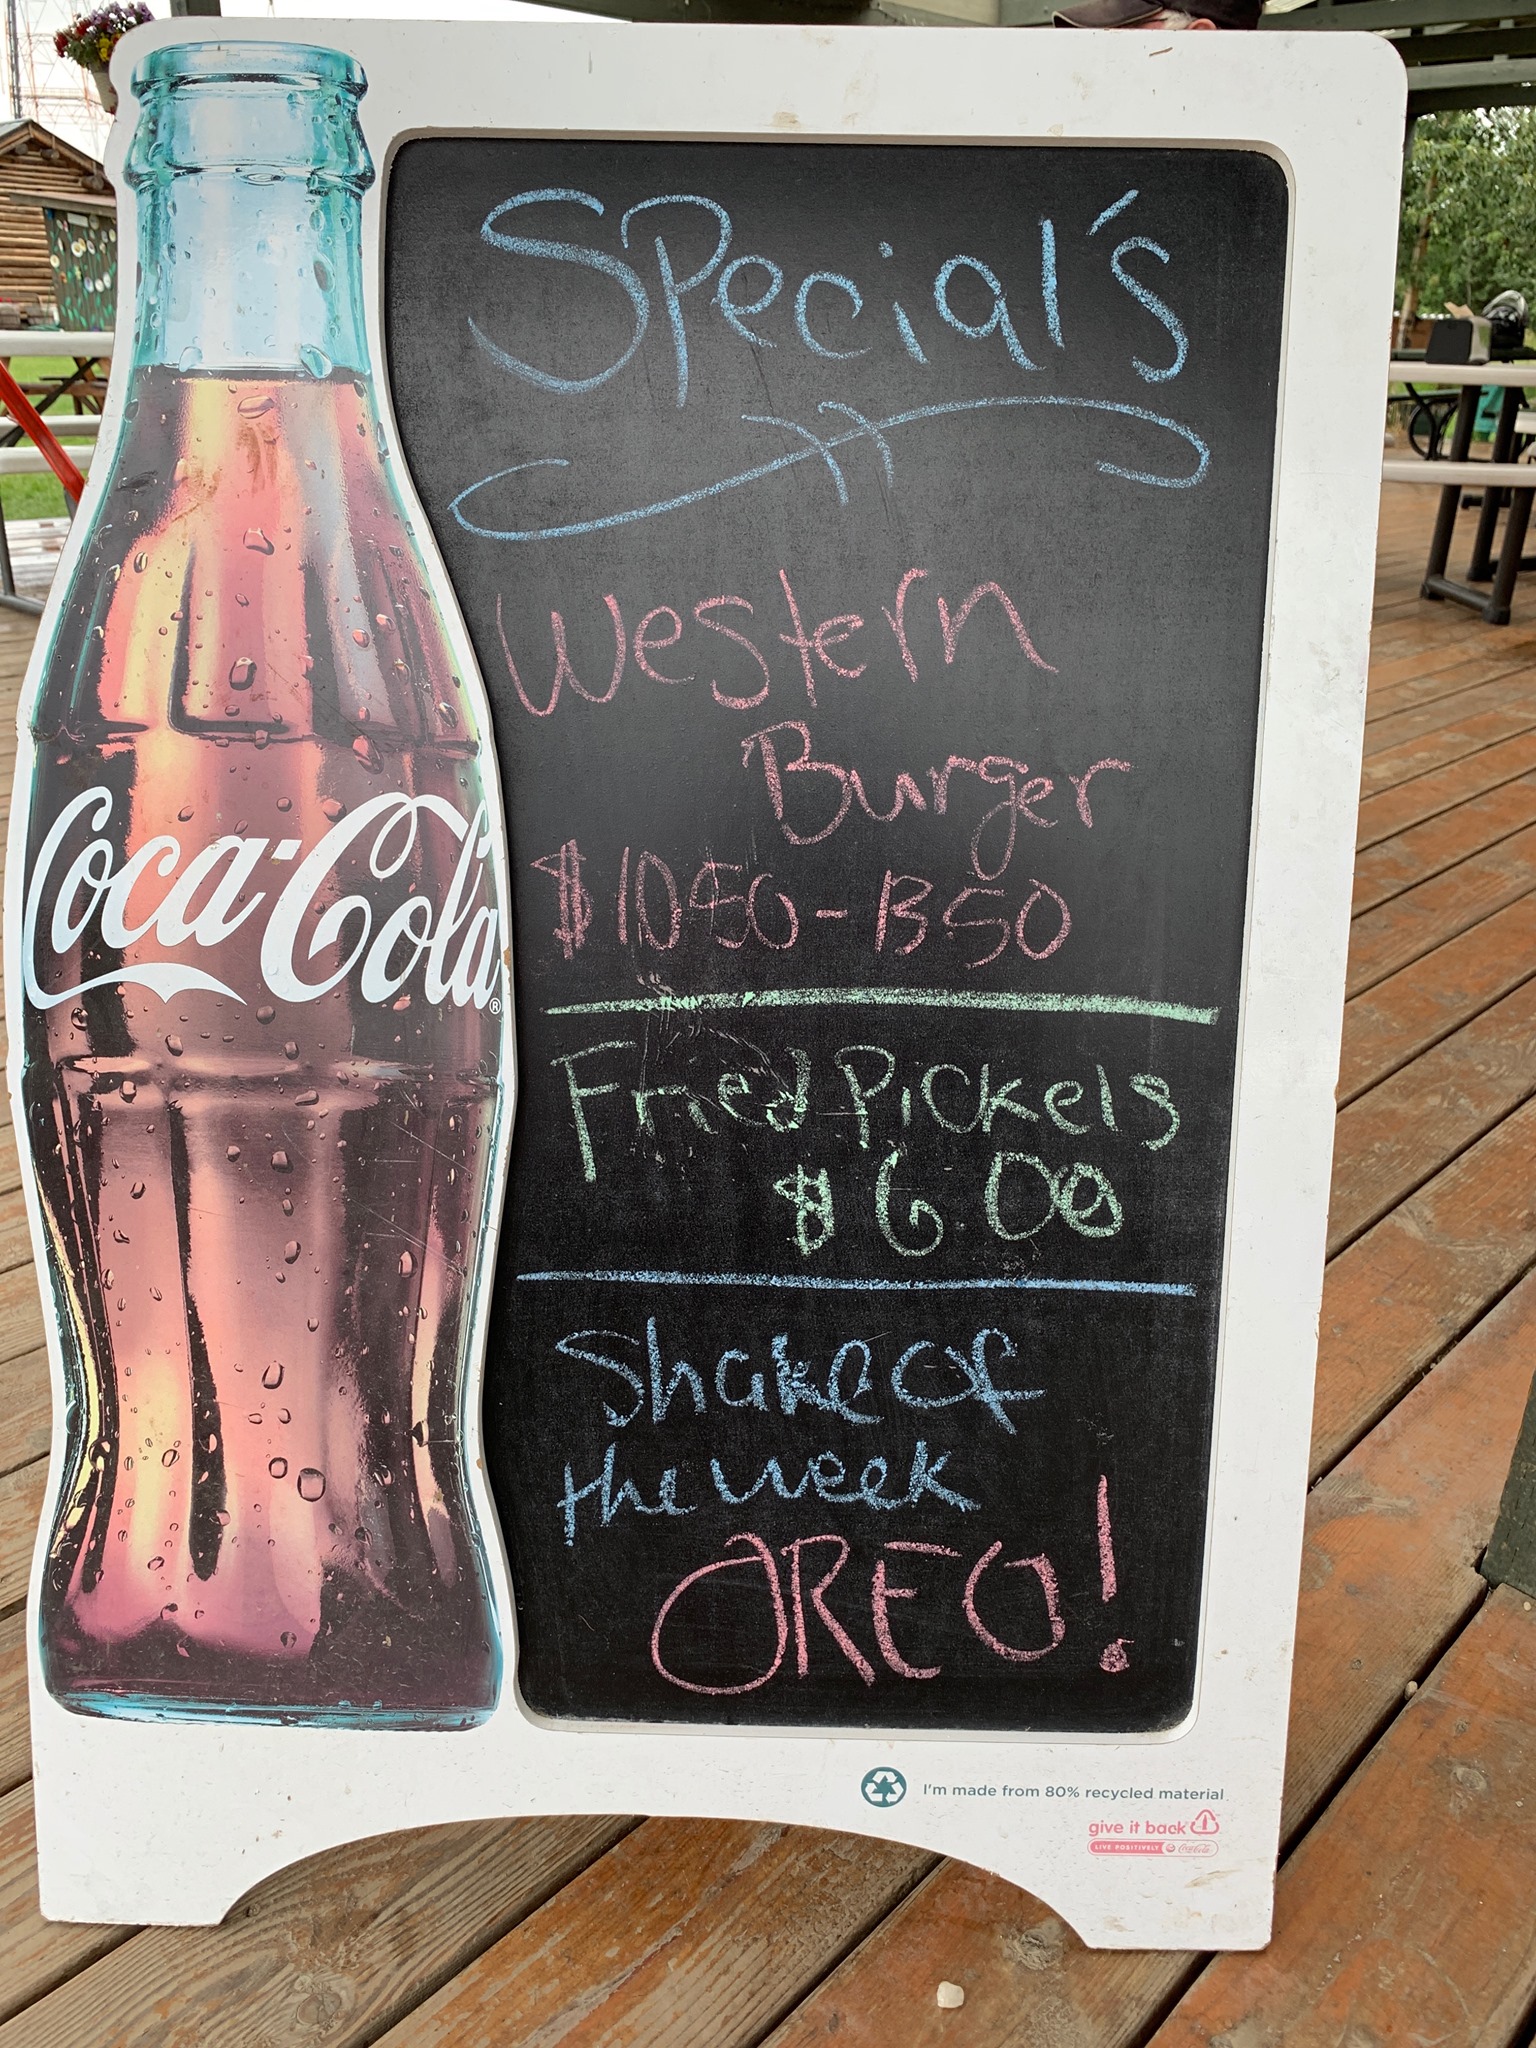 Special's
Western
Burger
$1050-1350
Fried Pickels
$6.00
Shake Of
the week
OREO!
Coca-Cola®
I'm made from 80% recycled material
give it back
LIVE POSITIVELY Coca-Cola